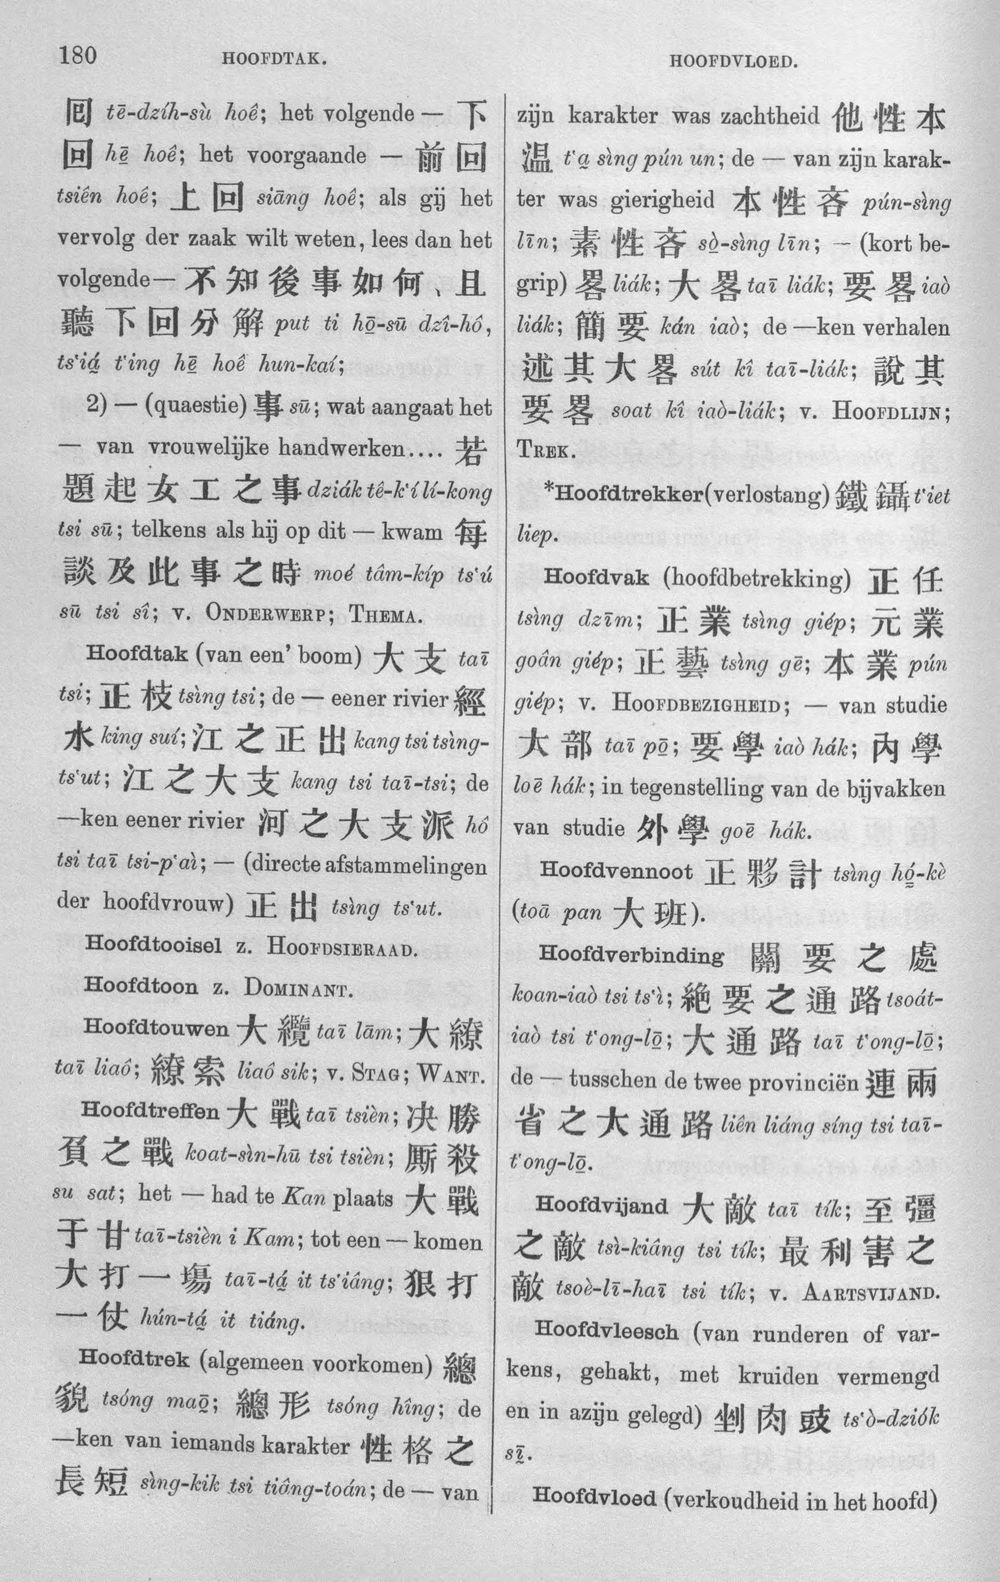 180
HOOFDTAK.
HOOFDVLOED.
回 tē-dzíh-sù hoê; het volgende — 下
回 hē̱ hoê; het voorgaande — 前 回
tsiên hoê; 上 回 siāng hoê; als gij het
vervolg der zaak wilt weten, lees dan het
volgende— 不 知 後 事 如 何 、 且
聽 下 回 分 解 put ti hō̱-sū dzî-hô,
ts'iá̱ t'ing hē̱ hoê hun-kaí;
2) — (quaestie) 事 sū; wat aangaat het
— van vrouwelijke handwerken.... 若
題 起 女 工 之 事 dziák tê-k'í lí-kong
tsi sū; telkens als hij op dit — kwam 每
談 及 此 事 之 時 moé tâm-kíp ts'ú
sū tsi sî; v. ONDERWERP; THEMA.
Hoofdtak (van een' boom) 大 支 taī
tsi; 正 枝 tsìng tsi; de — eener rivier 經
水 king suí; 江 之 正 出 kang tsi tsìng-
ts'ut; 江 之 大 支 kang tsi taī-tsi; de
—ken eener rivier 河 之 大 支 派 hô
tsi taī tsi-p'aì; — (directe afstammelingen
der hoofdvrouw) 正 出 tsìng ts'ut.
Hoofdtooisel z. HOOFDSIERAAD.
Hoofdtoon z. DOMINANT.
Hoofdtouwen 大 纜 taī lām; 大 繚
taī liaô; 繚 索 liaô sik; v. STAG; WANT.
Hoofdtreffen 大 戰 taī tsièn; 决 勝
負 之 戰 koat-sìn-hū tsi tsièn; 厮 殺
su sat; het — had te Kan plaats 大 戰
于 甘 taī-tsièn i Kam; tot een — komen
大 打 一 塲 taī-tá̱ it ts'iâng; 狠 打
一 仗 hún-tá̱ it tiáng.
Hoofdtrek (algemeen voorkomen) 總
貌 tsóng maō̱; 總 形 tsóng hîng; de
—ken van iemands karakter 性 格 之
長 短 sìng-kik tsi tiâng-toán; de — van
zijn karakter was zachtheid 他 性 本
温 t'a̱ sìng pún un; de — van zijn karak-
ter was gierigheid 本 性 吝 pún-sìng
līn; 素 性 吝 sò̱-sìng līn; — (kort be-
grip) 畧 liák; 大 畧 taī liák; 要 畧 iaò
liák; 簡 要 kán iaò; de —ken verhalen
述 其 大 畧 sút kî taī-liák; 說 其
要 畧 soat kî iaò-liák; v. HOOFDLIJN;
TREK.
*Hoofdtrekker(verlostang) 鐵 鑷 t'iet
liep.
Hoofdvak (hoofdbetrekking) 正 任
tsìng dzīm; 正 業 tsìng giép; 元 業
goân giép; 正 藝 tsìng gē; 本 業 pún
giép; v. HOOFDBEZIGHEID; — van studie
大 部 taī pō̱; 要 學 iaò hák; 內 學
loē hák; in tegenstelling van de bijvakken
van studie 外 學 goē hák.
Hoofdvennoot 正 夥 計 tsìng hó̱-kè
(toā pan 大 班).
Hoofdverbinding 關 要 之 處
koan-iaò tsi ts'ì; 絶 要 之 通 路 tsoát-
iaò tsi t'ong-lō̱; 大 通 路 taī t'ong-lō̱;
de — tusschen de twee provinciën 連 兩
省 之 大 通 路 liên liáng síng tsi taī-
t'ong-lō̱.
Hoofdvijand 大 敵 taī tík; 至 彊
之 敵 tsì-kiâng tsi tík; 最 利 害 之
敵 tsoè-lī-haī tsi tík; v. AARTSVIJAND.
Hoofdvleesch (van runderen of var-
kens, gehakt, met kruiden vermengd
en in azijn gelegd) 剉 肉 豉 ts'ò-dziók
sī̱.
Hoofdvloed (verkoudheid in het hoofd)